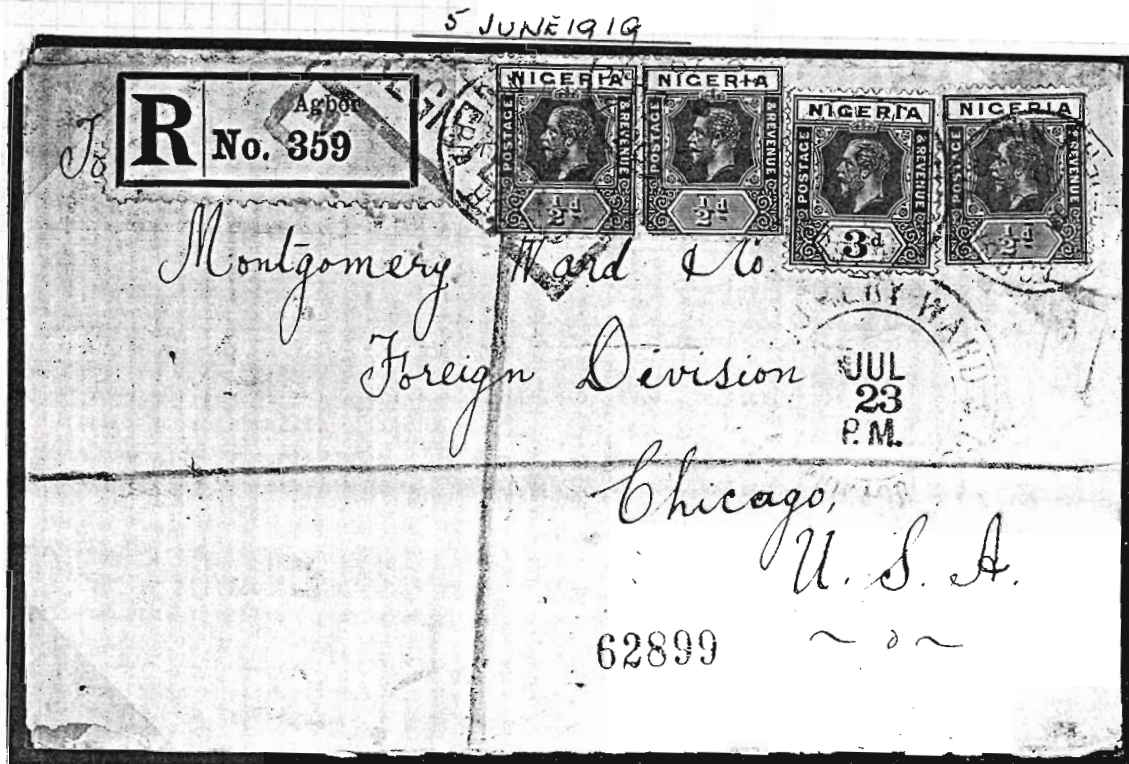 5 JUNE 1919
R Agbor
No. 359
NIGERIA
POSTAGE & REVENUE
½d
NIGERIA
POSTAGE & REVENUE
½d
NIGERIA
POSTAGE & REVENUE
3d
NIGERIA
POSTAGE & REVENUE
½d
To
Montgomery Ward & Co.
WARD
Foreign Division
JUL
23
P.M.
Chicago,
U. S. A.
62899